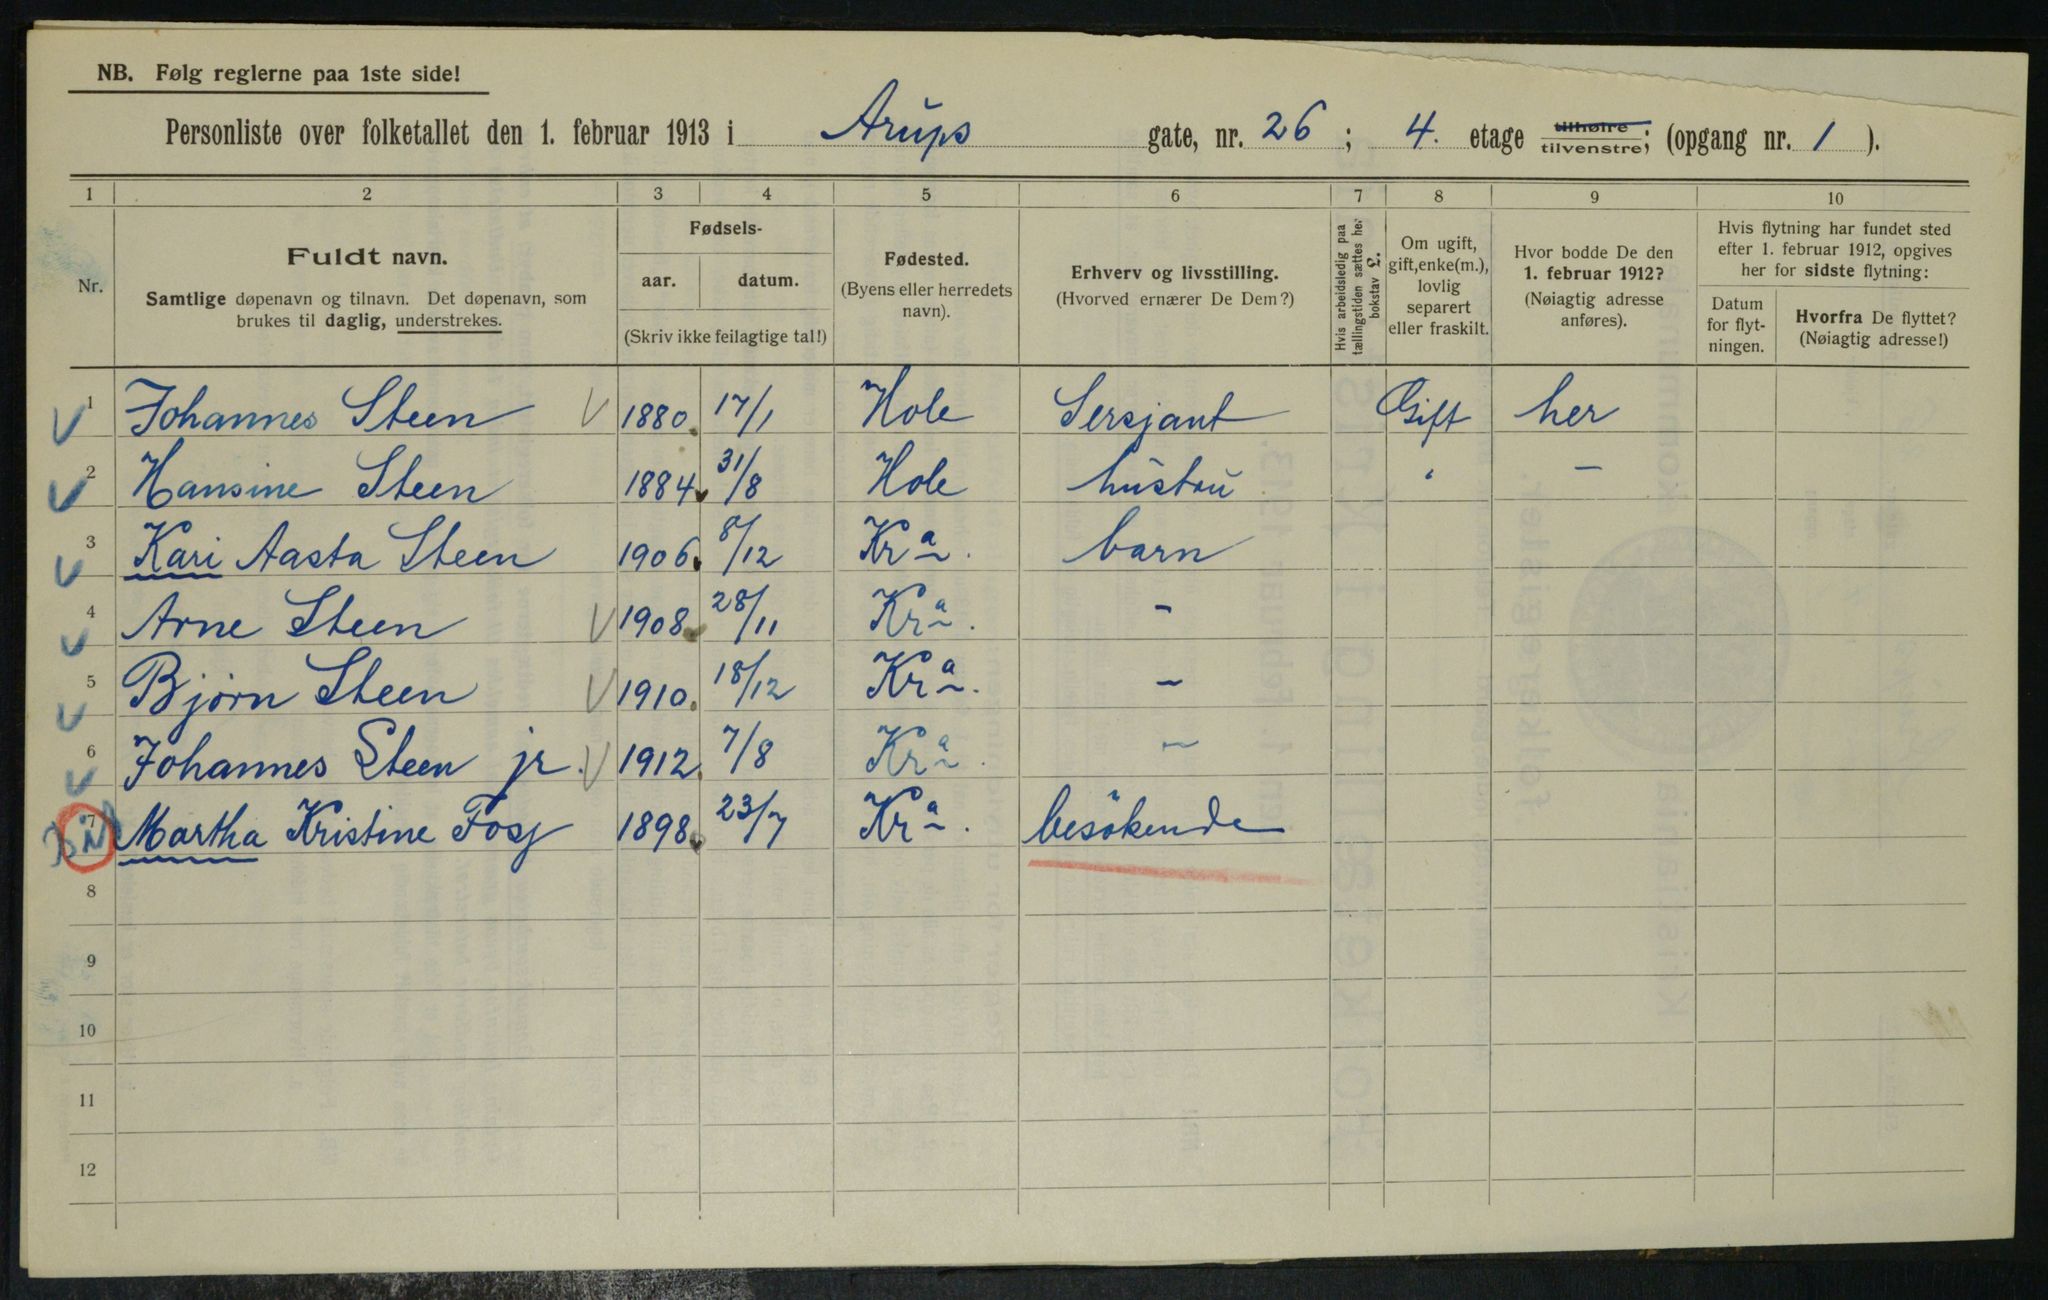 NB. Følg reglerne paa 1ste side!
Personliste over folketallet den 1. februar 1913 i Arups gate, nr. 26; 4. etage tilhøire tilvenstre; (opgang nr. 1).
1 2 3 4 5 6 7 8 9 10
Nr.
Fuldt navn.
Samtlige døpenavn og tilnavn. Det døpenavn, som
brukes til daglig, understrekes.
Fødsels-
aar. datum.
(Skriv ikke feilagtige tal!)
Fødested.
(Byens eller herredets
navn).
Erhverv og livsstilling.
(Hvorved ernærer De Dem?)
Hvis arbeidsledig paa
tællingstiden sættes her
bokstav L.
Om ugift,
gift, enke(m.),
lovlig
separert
eller fraskilt.
Hvor bodde De den
1. februar 1912?
(Nøiagtig adresse
anføres).
Hvis flytning har fundet sted
efter 1. februar 1912, opgives
her for sidste flytning:
Datum
for flyt-
ningen.
Hvorfra De flyttet?
(Nøiagtig adresse!)
1 Johannes Steen 1880. 17/1 Hole Sersjant Gift her
2 Hansine Steen 1884 31/8 Hole hustru " –
3 Kari Aasta Steen 1906. 8/12 Kra. barn
4 Arne Steen 1908 28/11 Kra. –
5 Bjørn Steen 1910. 18/12 Kra. –
6 Johannes Steen jr. 1912. 7/8 Kra. –
7 Martha Kristine Fosj 1898 23/7 Kra. besökende
8
9
10
11
12